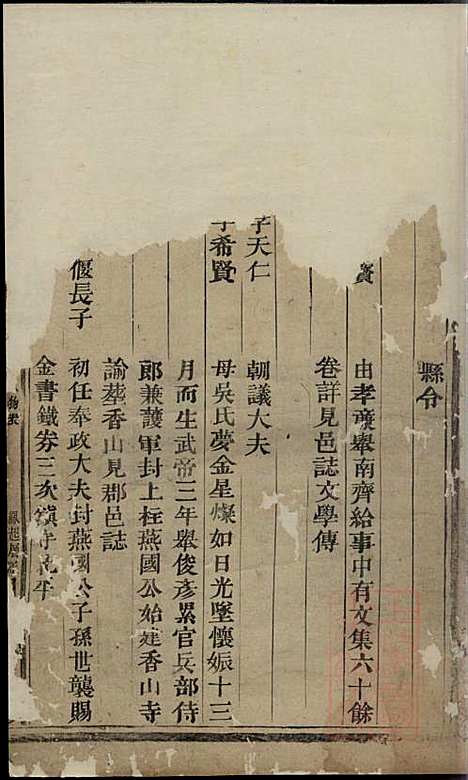 縣令
由孝廉舉南齊給事中有文集六十餘
卷詳見邑誌文學傳
子天仁
朝議大夫
子希賢
母吳氏夢金星燦如日光墜懷娠十三
月而生武帝三年舉俊彥累官兵部侍
郎兼護軍封上柱燕國公始建香山寺
諭葬香山見郡邑誌
偃長子
初任奉政大夫封燕國公子孫世襲賜
金書鐵券三次鎮守南平